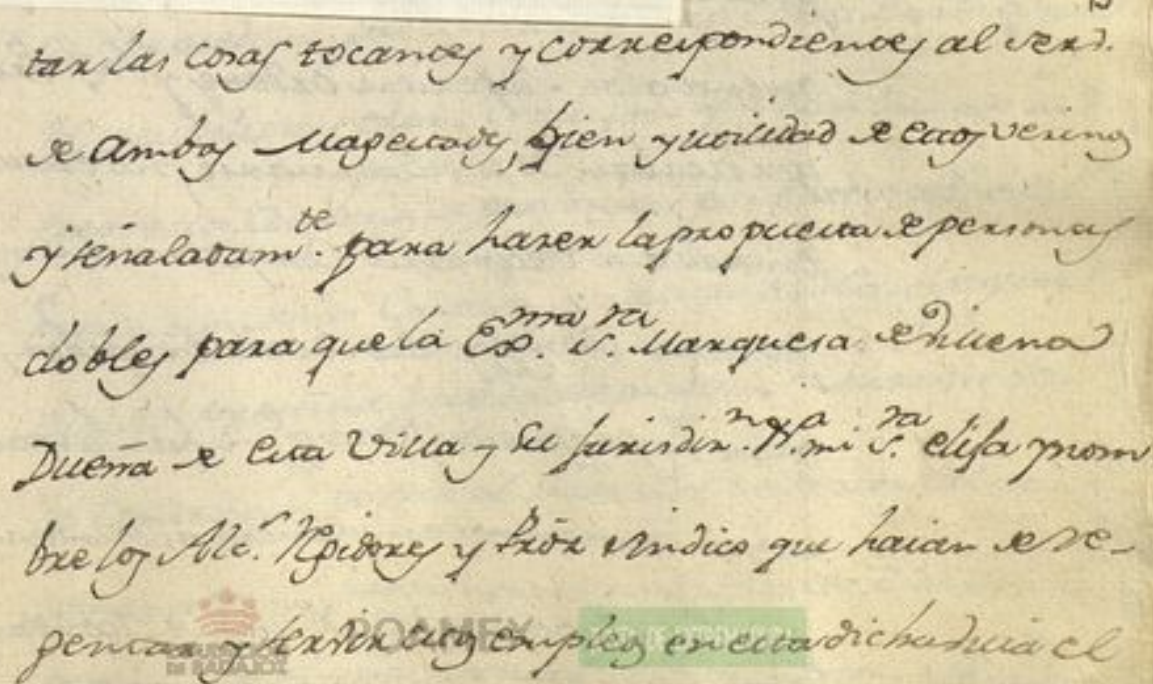 tar las cosas tocantes y correspondientes al serv.
de ambas Magestads, bien y utilidad de estos vecinos
y señaladam.te para hazer la propuesta de personas
dobles para que la Ex.ma S.ra Marquesa de Villena
Dueña de esta Villa y su jurisdi.n mi S.ra elija y nom
bre los Alc.s Rexidores y Pror sindico que haian de re-
gentar y servir sus empleos en esta dicha el
DE BADAJOZ